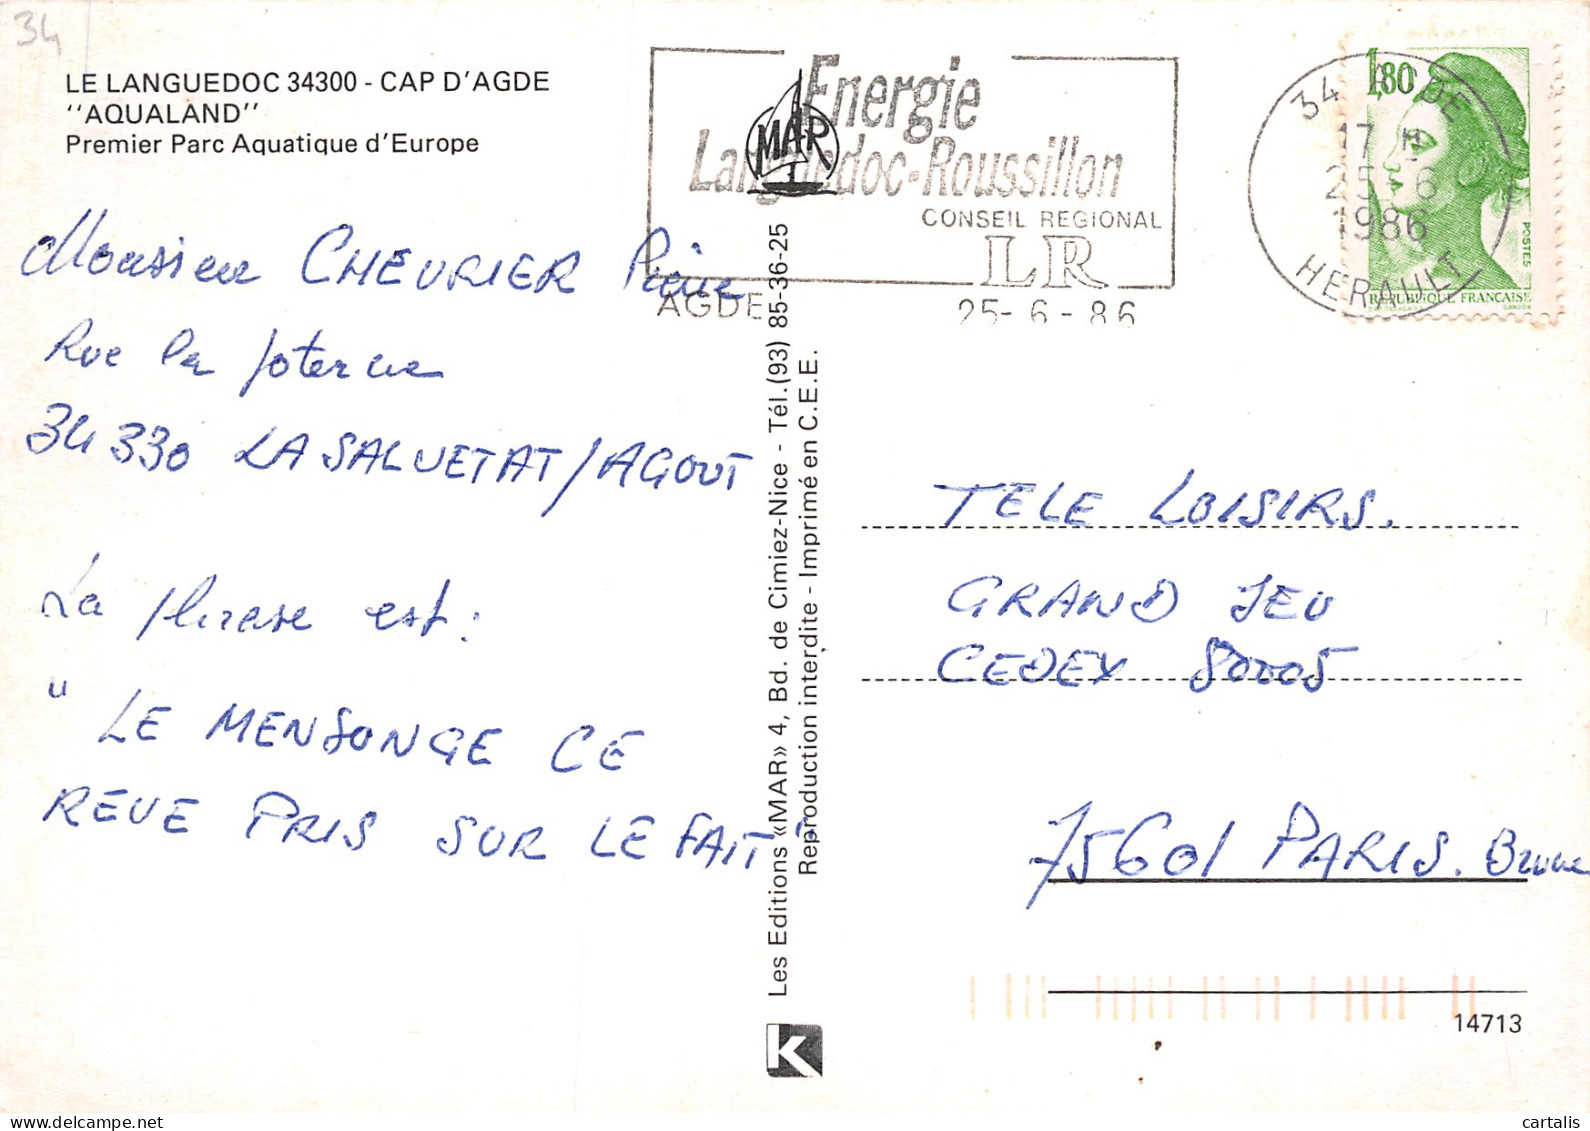 34
LE LANGUEDOC 34300 - CAP D'AGDE
"AQUALAND"
Premier Parc Aquatique d'Europe
Monsieur CHEVRIER Pierre
Rue la Poterne
34 330 LA SALVETAT/AGOUT
La phrase est :
" LE MENSONGE CE
REVE PRIS SUR LE FAIT "
MAR
Energie
Languedoc-Roussillon
CONSEIL REGIONAL
LR
AGDE 25-6-86
34 AGDE
17 H
25 6
1986
HERAULT
1,80
POSTES
REPUBLIQUE FRANÇAISE
GANDON
Les Editions «MAR» 4, Bd. de Cimiez-Nice - Tél.(93) 85-36-25
Reproduction interdite - Imprimé en C.E.E.
K
TELE LOISIRS.
GRAND JEU
CEDEX 80005
75601 PARIS. Brune
14713
cartalis